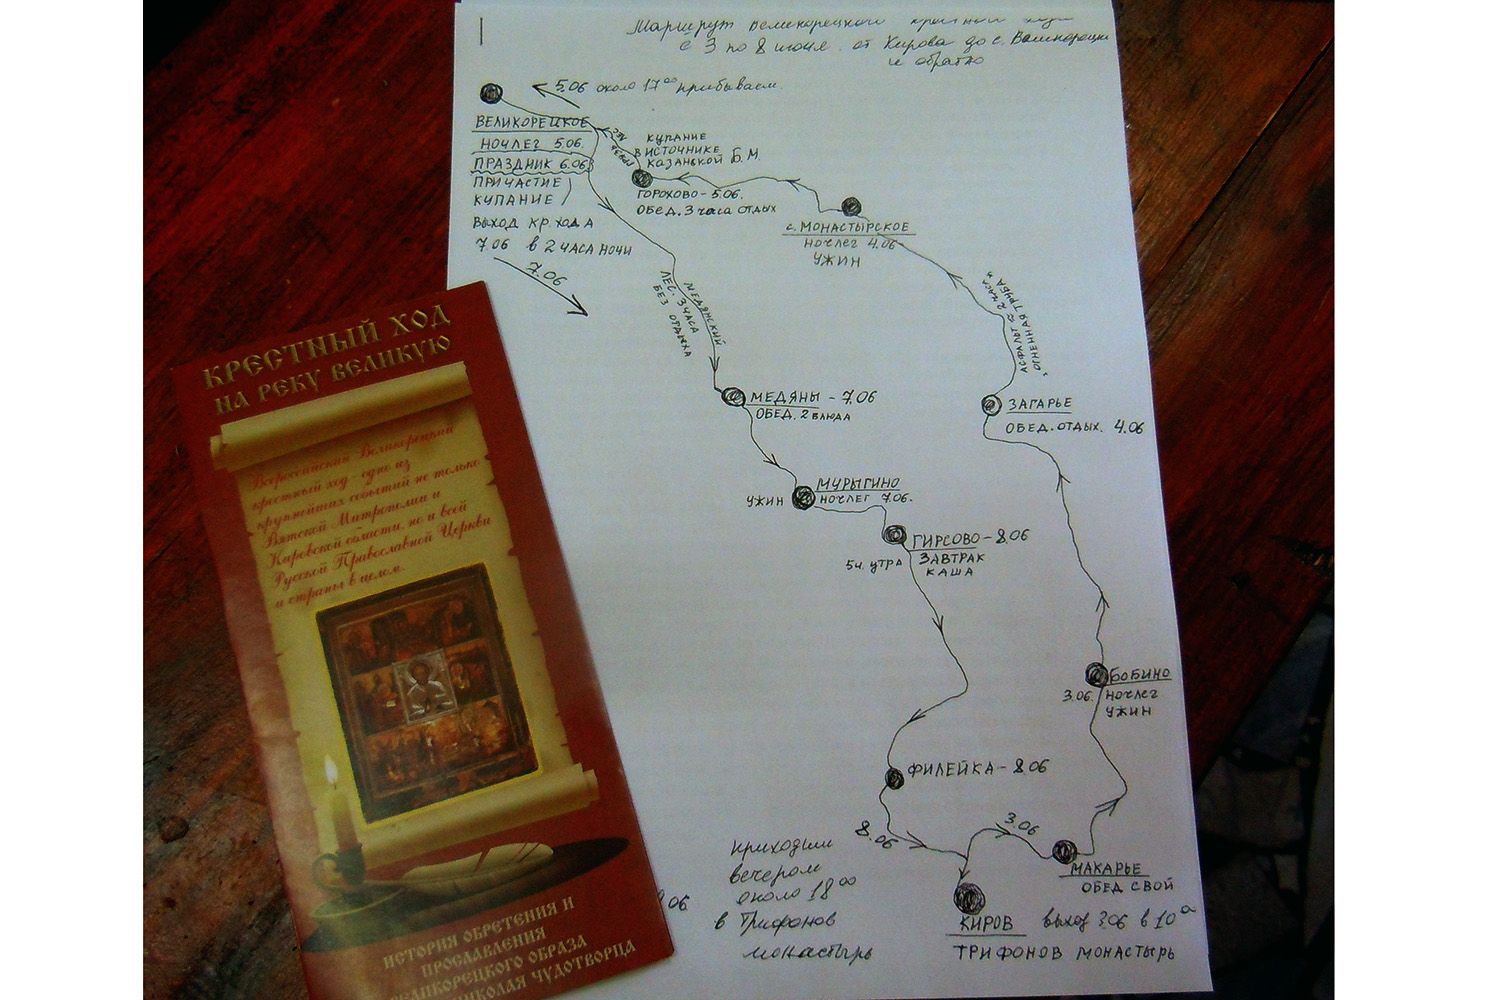 Маршрут Великорецкого крестного хода
с 3 по 8 июня от Кирова до с. Великорецкое
и обратно
5.06 около 17⁰⁰ прибываем.
ВЕЛИКОРЕЦКОЕ
НОЧЛЕГ 5.06.
ПРАЗДНИК 6.06
ПРИЧАСТИЕ
КУПАНИЕ
ВЫХОД КР. ХОДА
7.06 в 2 ЧАСА НОЧИ
7.06
КУПАНИЕ
В ИСТОЧНИКЕ
КАЗАНСКОЙ Б.М.
ГОРОХОВО - 5.06.
ОБЕД. 3 часа ОТДЫХ
с. МОНАСТЫРСКОЕ
НОЧЛЕГ 4.06
УЖИН
АСФАЛЬТ 2 ЧАСА
"ОГНЕННАЯ ТРУБА"
ЗАГАРЬЕ
ОБЕД. ОТДЫХ. 4.06
МЕДЯНСКИЙ
ЛЕС. 3 ЧАСА
БЕЗ ОТДЫХА
МЕДЯНЫ - 7.06
ОБЕД. 2 БЛЮДА
МУРЫГИНО
УЖИН НОЧЛЕГ 7.06.
ГИРСОВО - 8.06
5ч. УТРА ЗАВТРАК
КАША
БОБИНО
3.06. НОЧЛЕГ
УЖИН
ФИЛЕЙКА - 8.06
8.06
3.06
МАКАРЬЕ
ОБЕД СВОЙ
КИРОВ выход 3.06 в 10
ТРИФОНОВ МОНАСТЫРЬ
приходим
вечером
около 18⁰⁰
в Трифонов
монастырь
КРЕСТНЫЙ ХОД
НА РЕКУ ВЕЛИКУЮ
Всероссийский Великорецкий
крестный ход - одно из
крупнейших событий не только
Вятской Митрополии и
Кировской области, но и всей
Русской Православной Церкви
и страны в целом.
ИСТОРИЯ ОБРЕТЕНИЯ И
ПРОСЛАВЛЕНИЯ
ВЕЛИКОРЕЦКОГО ОБРАЗА
НИКОЛАЯ ЧУДОТВОРЦА